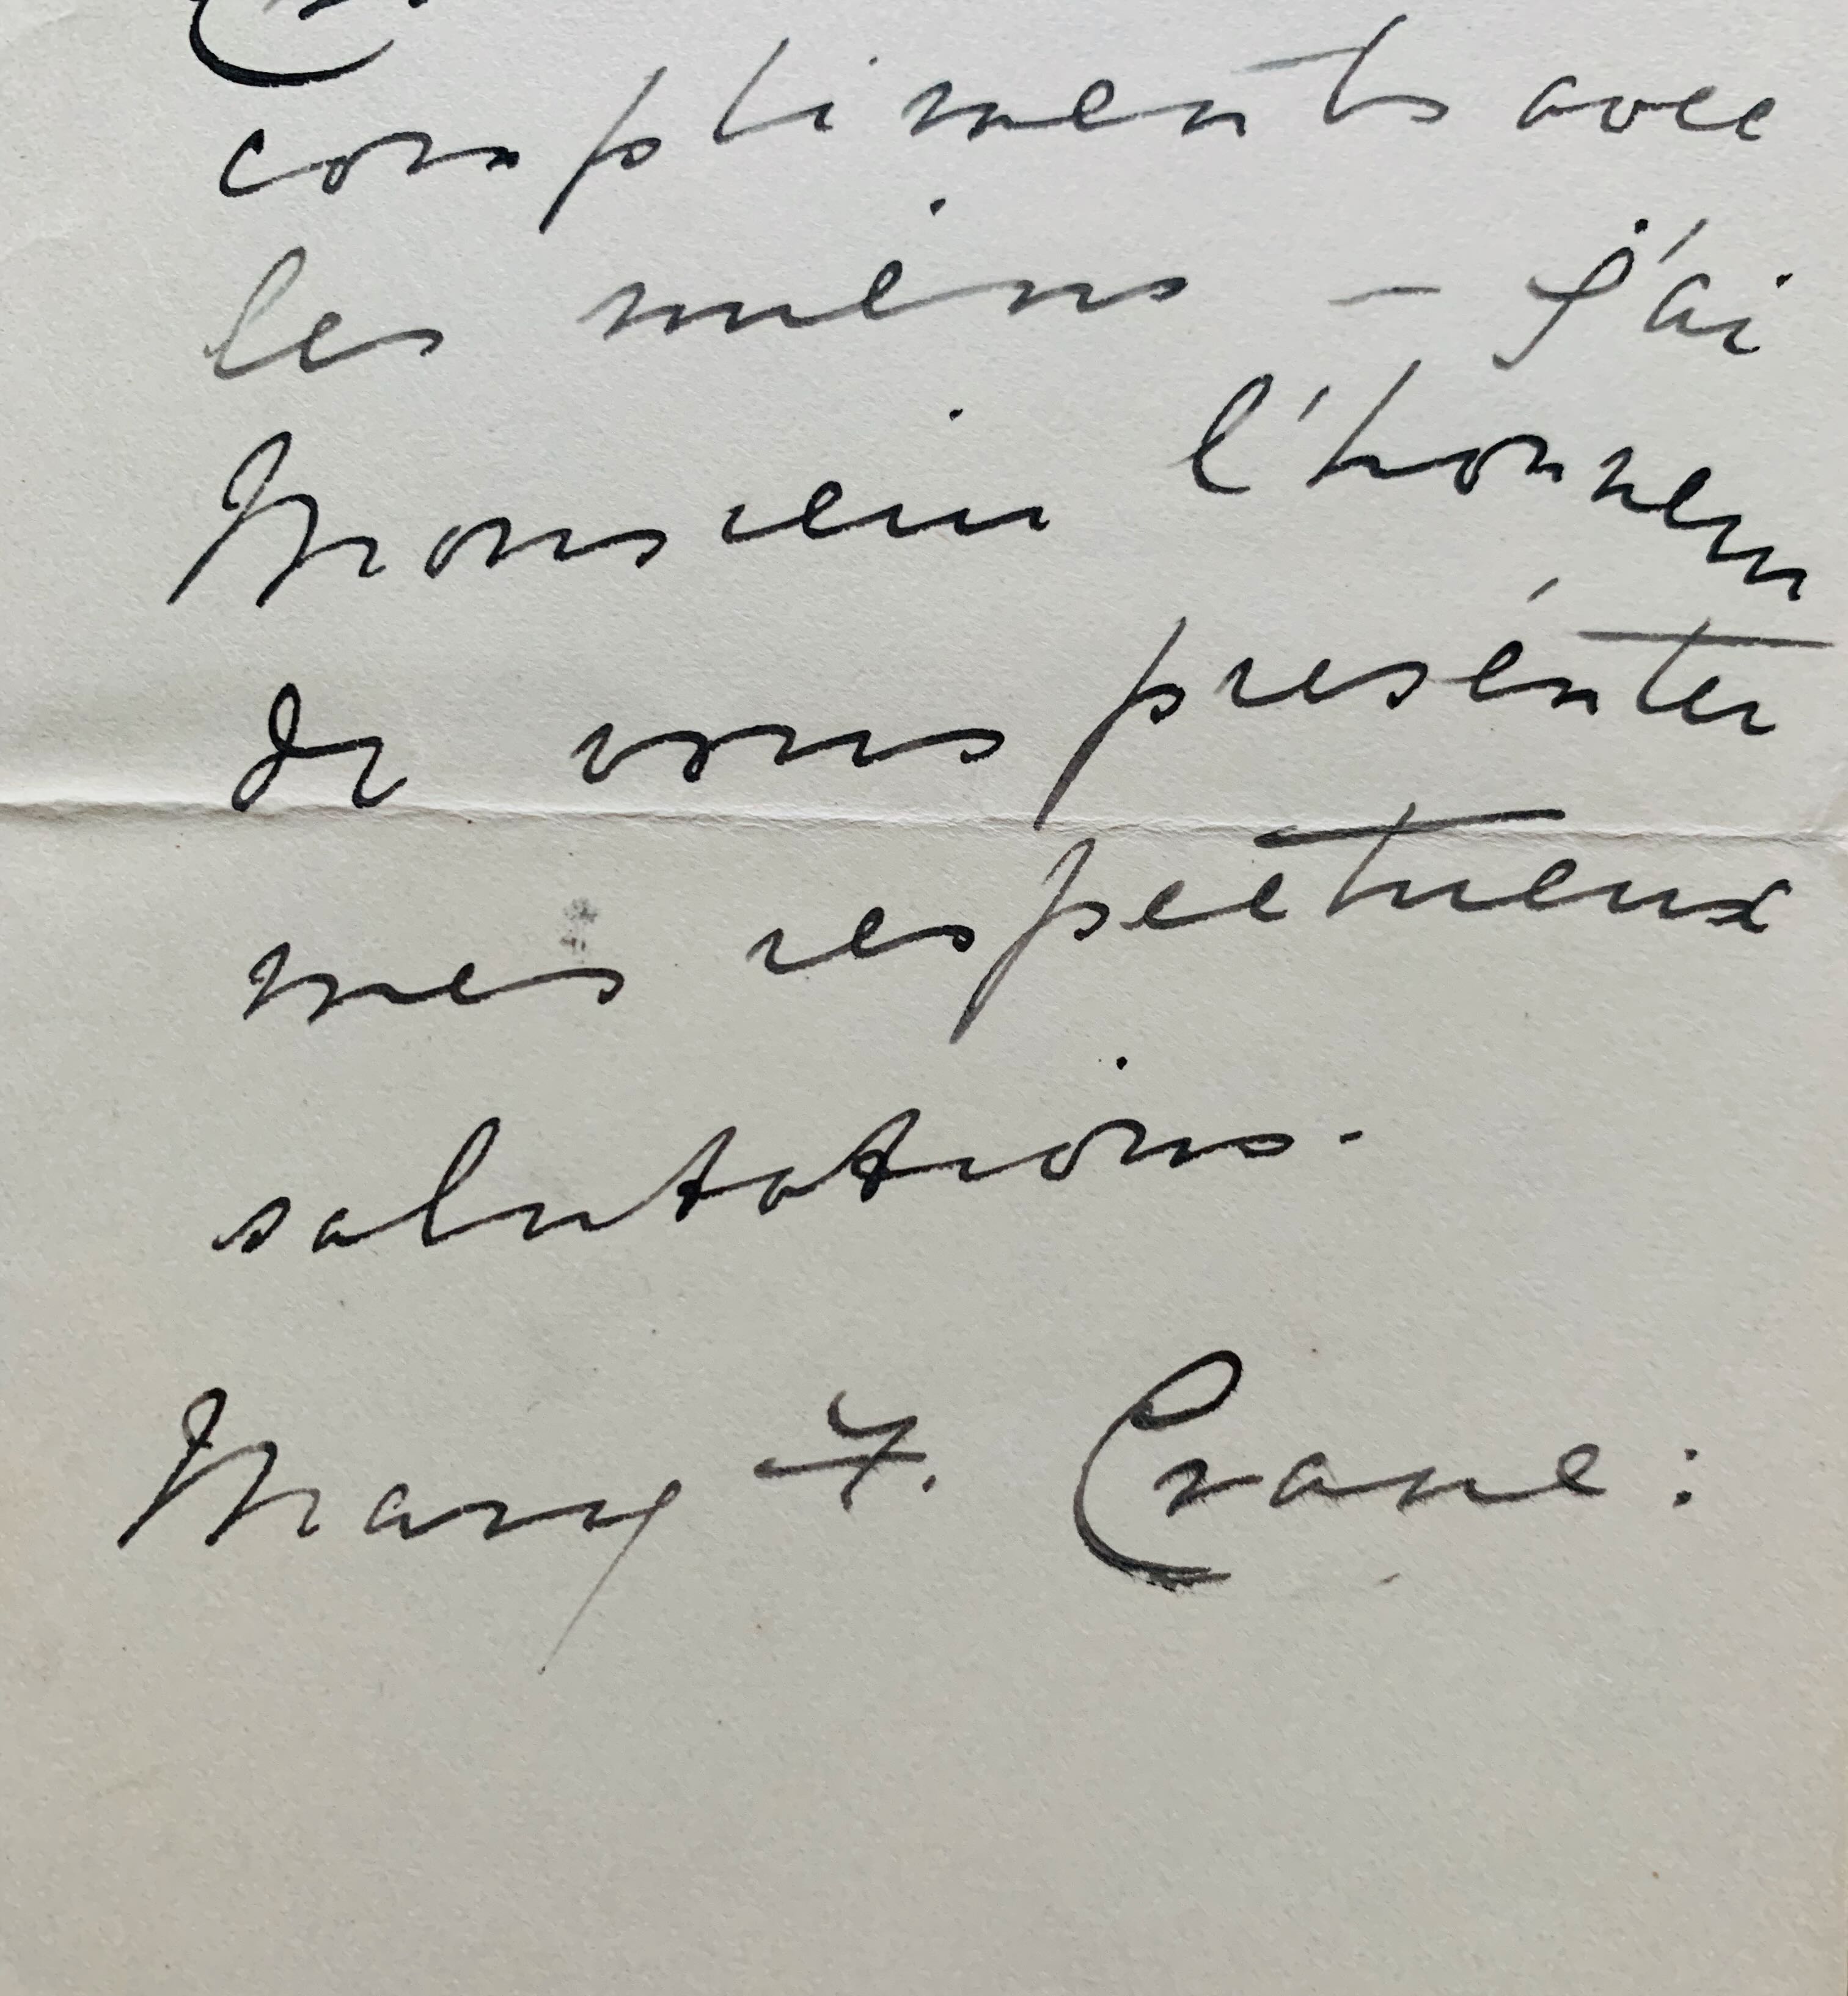 compliments avec
les miens – J'ai
Monsieur l'honneur
de vous présenter
mes respectueux
salutations.
Mary F. Crane: